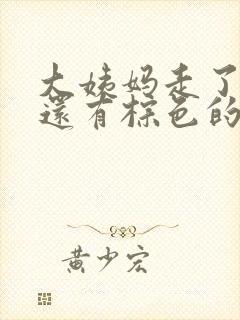 大姨妈走了
還有棕色的
黄少宏